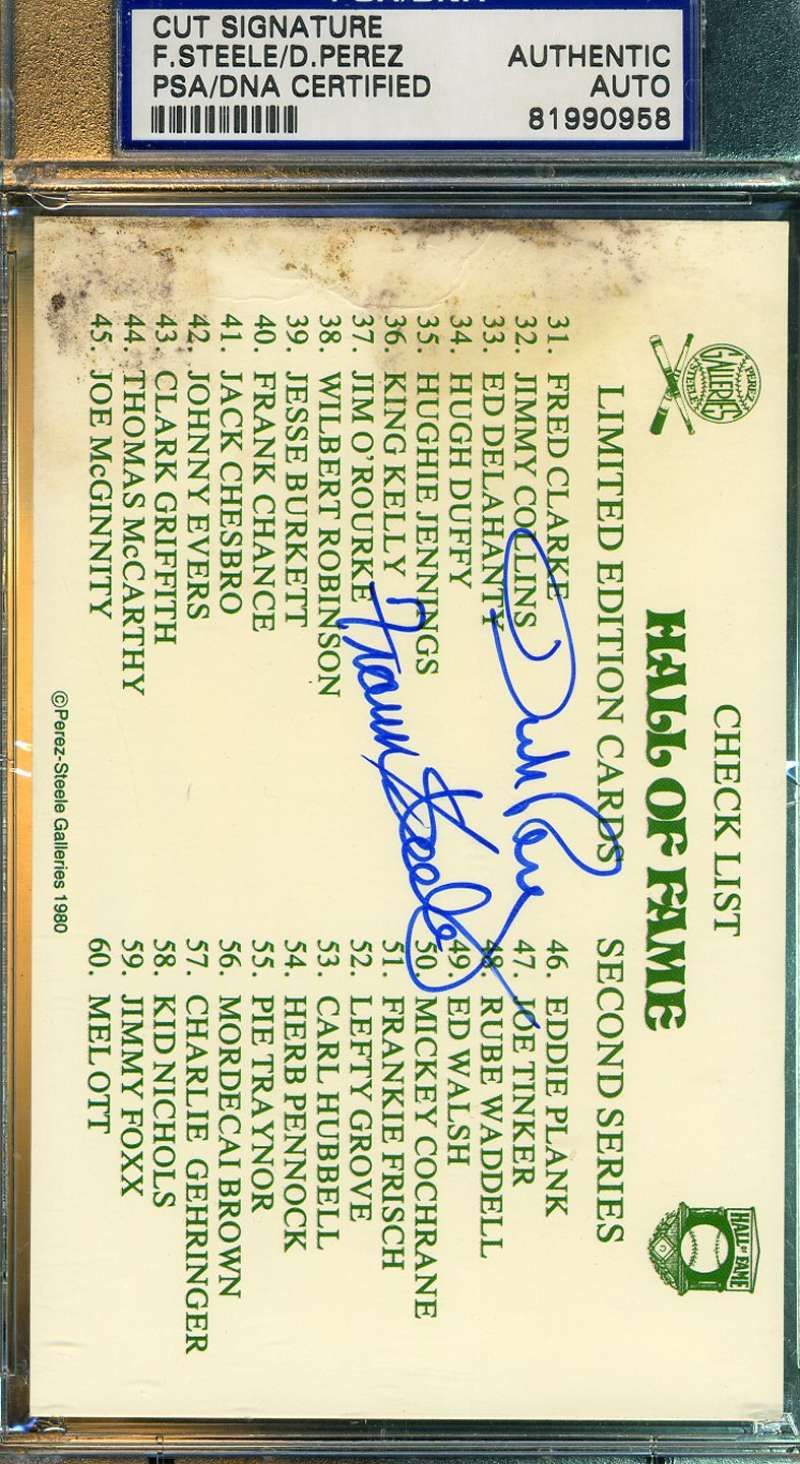 PSA/DNA
CUT SIGNATURE
F.STEELE/D.PEREZ
PSA/DNA CERTIFIED
AUTHENTIC
AUTO
81990958
PEREZ
GALLERIES
STEELE
CHECK LIST
HALL OF FAME
HALL OF FAME
LIMITED EDITION CARDS
SECOND SERIES
31. FRED CLARKE
32. JIMMY COLLINS
33. ED DELAHANTY
34. HUGH DUFFY
35. HUGHIE JENNINGS
36. KING KELLY
37. JIM O'ROURKE
38. WILBERT ROBINSON
39. JESSE BURKETT
40. FRANK CHANCE
41. JACK CHESBRO
42. JOHNNY EVERS
43. CLARK GRIFFITH
44. THOMAS McCARTHY
45. JOE McGINNITY
46. EDDIE PLANK
47. JOE TINKER
48. RUBE WADDELL
49. ED WALSH
50. MICKEY COCHRANE
51. FRANKIE FRISCH
52. LEFTY GROVE
53. CARL HUBBELL
54. HERB PENNOCK
55. PIE TRAYNOR
56. MORDECAI BROWN
57. CHARLIE GEHRINGER
58. KID NICHOLS
59. JIMMY FOXX
60. MEL OTT
Dick Perez
Frank Steele
©Perez-Steele Galleries 1980